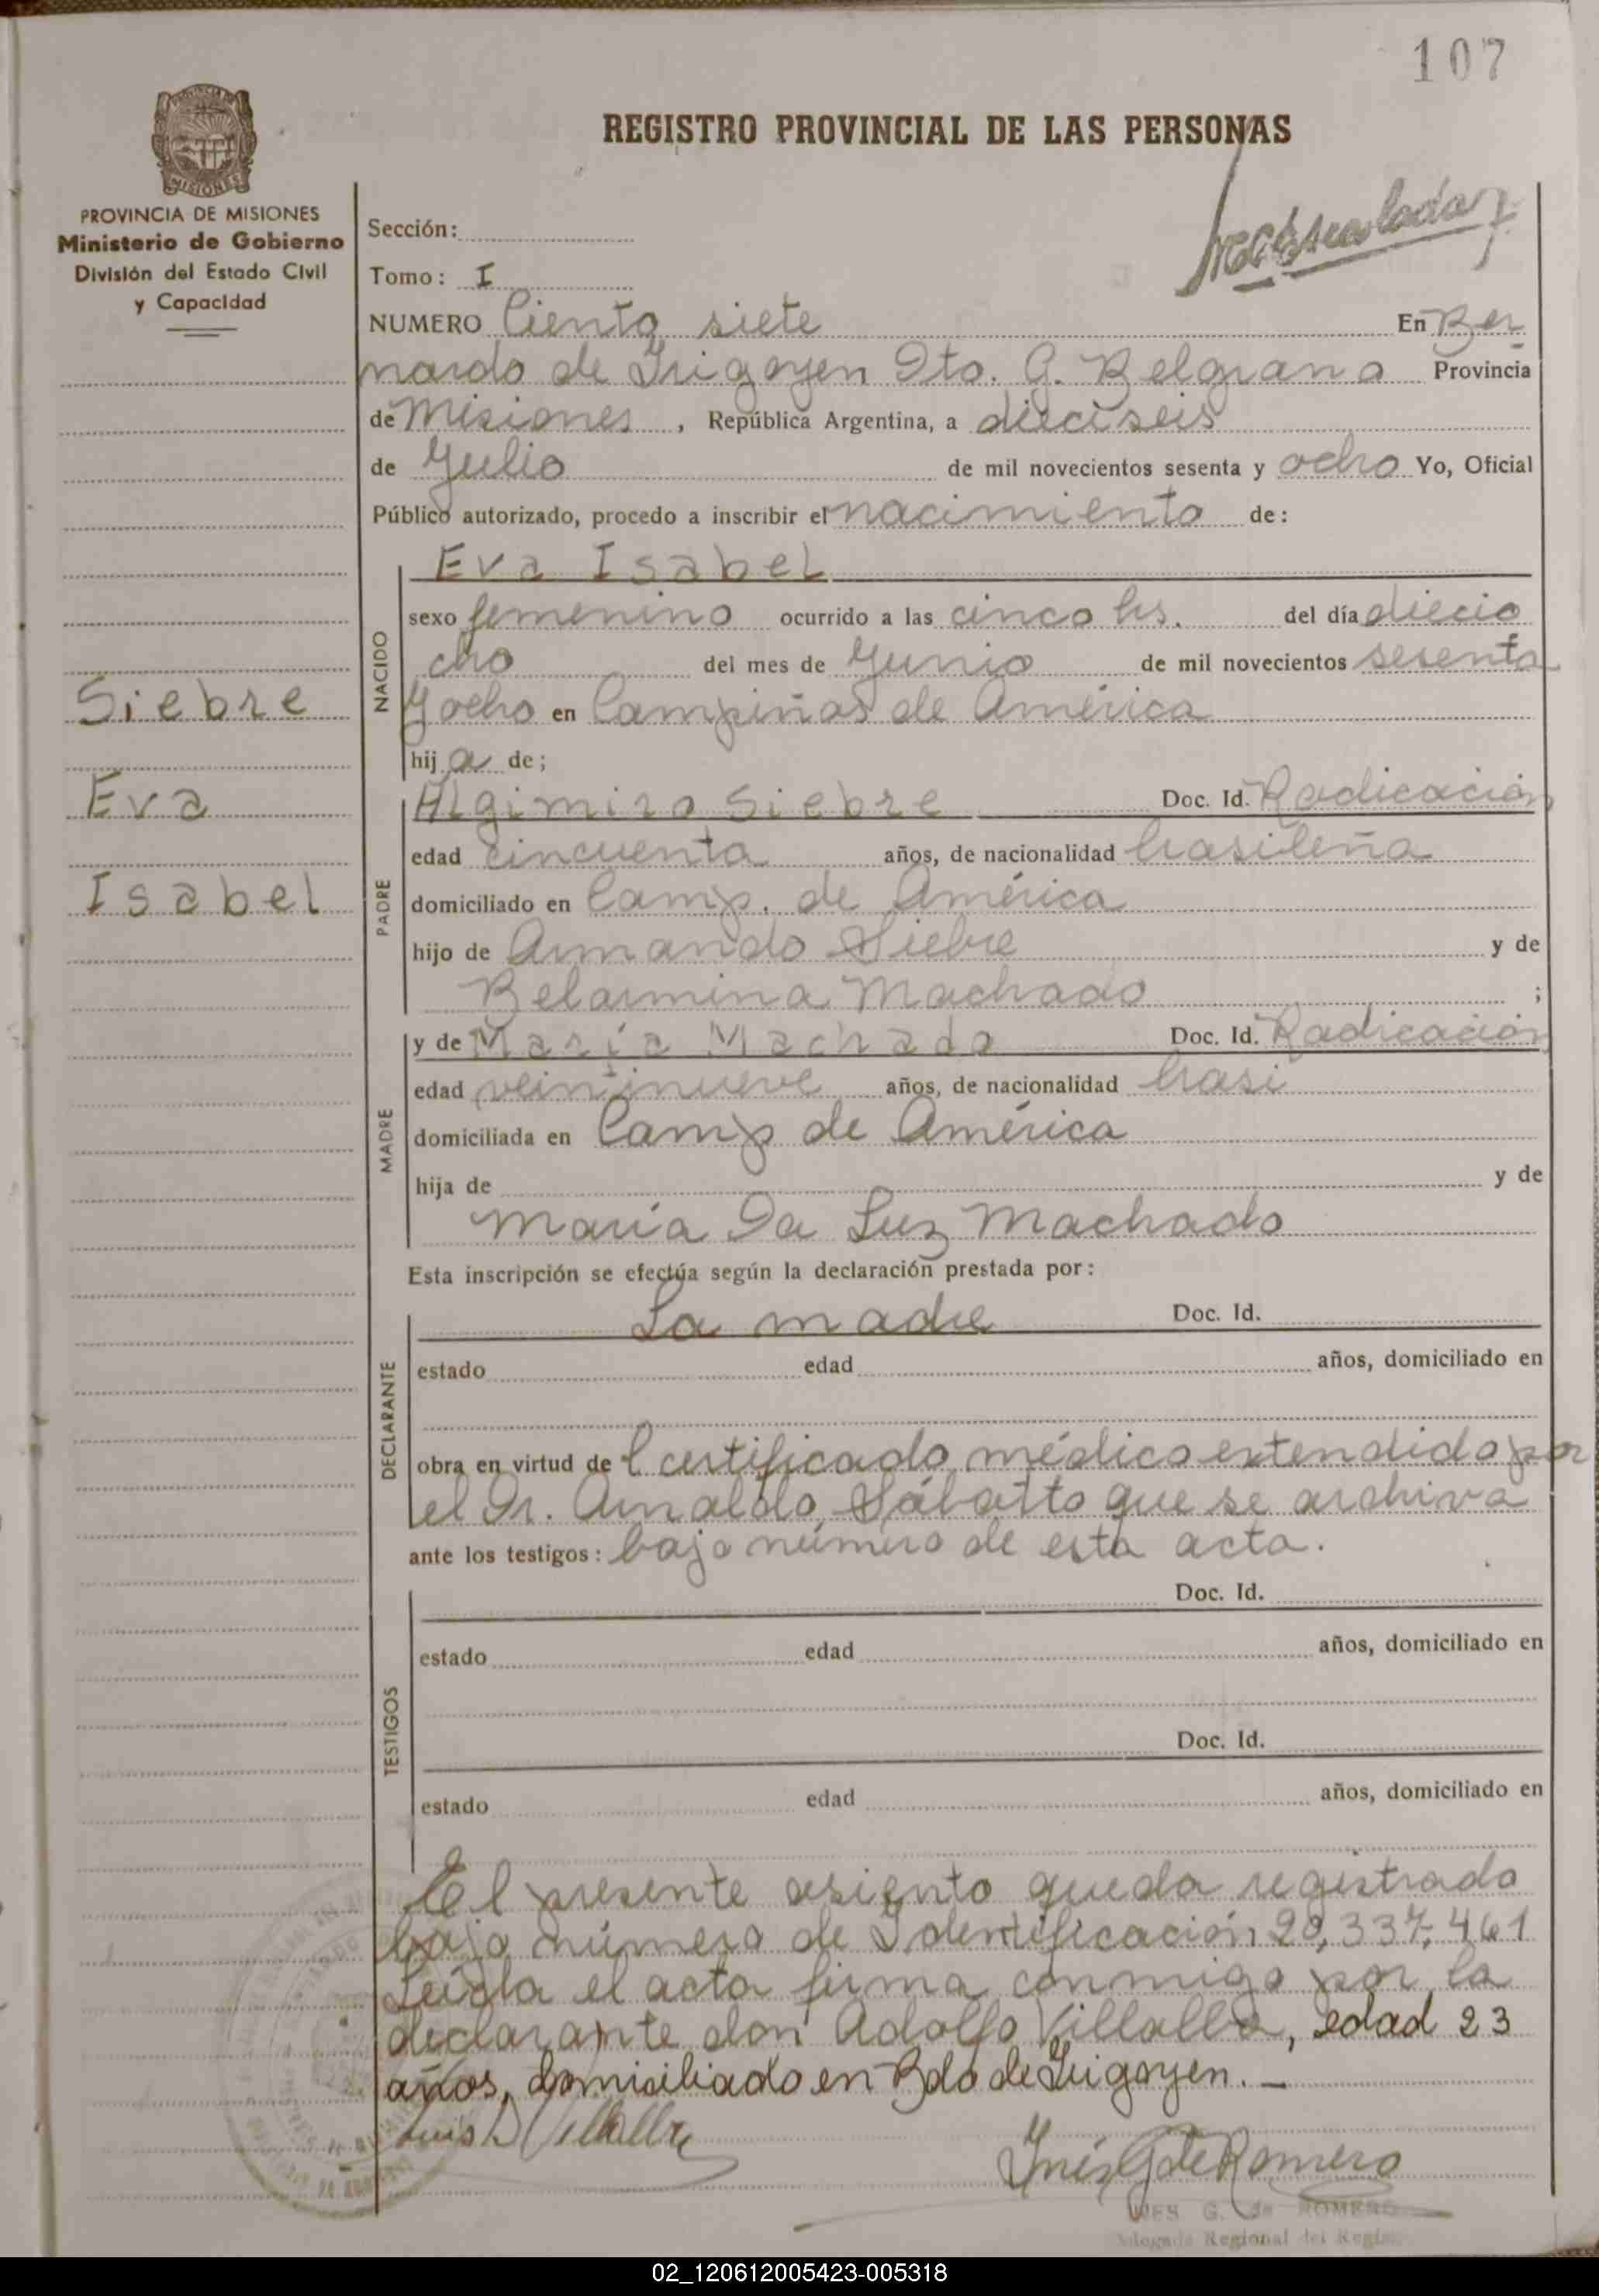 107
REGISTRO PROVINCIAL DE LAS PERSONAS
MISIONES
PROVINCIA DE MISIONES
Ministerio de Gobierno
División del Estado Civil
y Capacidad
Sección:
Tomo: I
NUMERO Ciento siete En Ber
nardo de Irigoyen Dto. G. Belgrano Provincia
de Misiones, República Argentina, a dieciseis
de Julio de mil novecientos sesenta y ocho Yo, Oficial
Público autorizado, procedo a inscribir el nacimiento de:
NACIDO
Eva Isabel
sexo femenino ocurrido a las cinco hs. del día diecio
cho del mes de Junio de mil novecientos sesenta
y ocho en Campiñas de América
hija de;
Siebre
Eva
Isabel
PADRE
Algimiro Siebre Doc. Id. Radicación
edad cincuenta años, de nacionalidad brasileña
domiciliado en Camp. de América
hijo de Armando Siebre y de
Belarmina Machado ;
MADRE
y de María Machado Doc. Id. Radicación
edad veintinueve años, de nacionalidad brasi
domiciliada en Camp de América
hija de y de
María Da Luz Machado
Esta inscripción se efectúa según la declaración prestada por:
DECLARANTE
La madre Doc. Id.
estado edad años, domiciliado en
obra en virtud de l certificado médico extendido por
el Dr. Arnaldo Sábatto que se archiva
ante los testigos: bajo número de esta acta.
TESTIGOS
Doc. Id.
estado edad años, domiciliado en
Doc. Id.
estado edad años, domiciliado en
El presente asiento queda registrado
bajo número de Identificación 20,337,461
Leída el acta firma conmigo por la
declarante don Adolfo Villalba, edad 23
años, domiciliado en Bdo de Irigoyen. —
Luis Villalba
Inés G de Romero
INES G. de ROMERO
Delegada Regional del Regis.
02_120612005423-005318